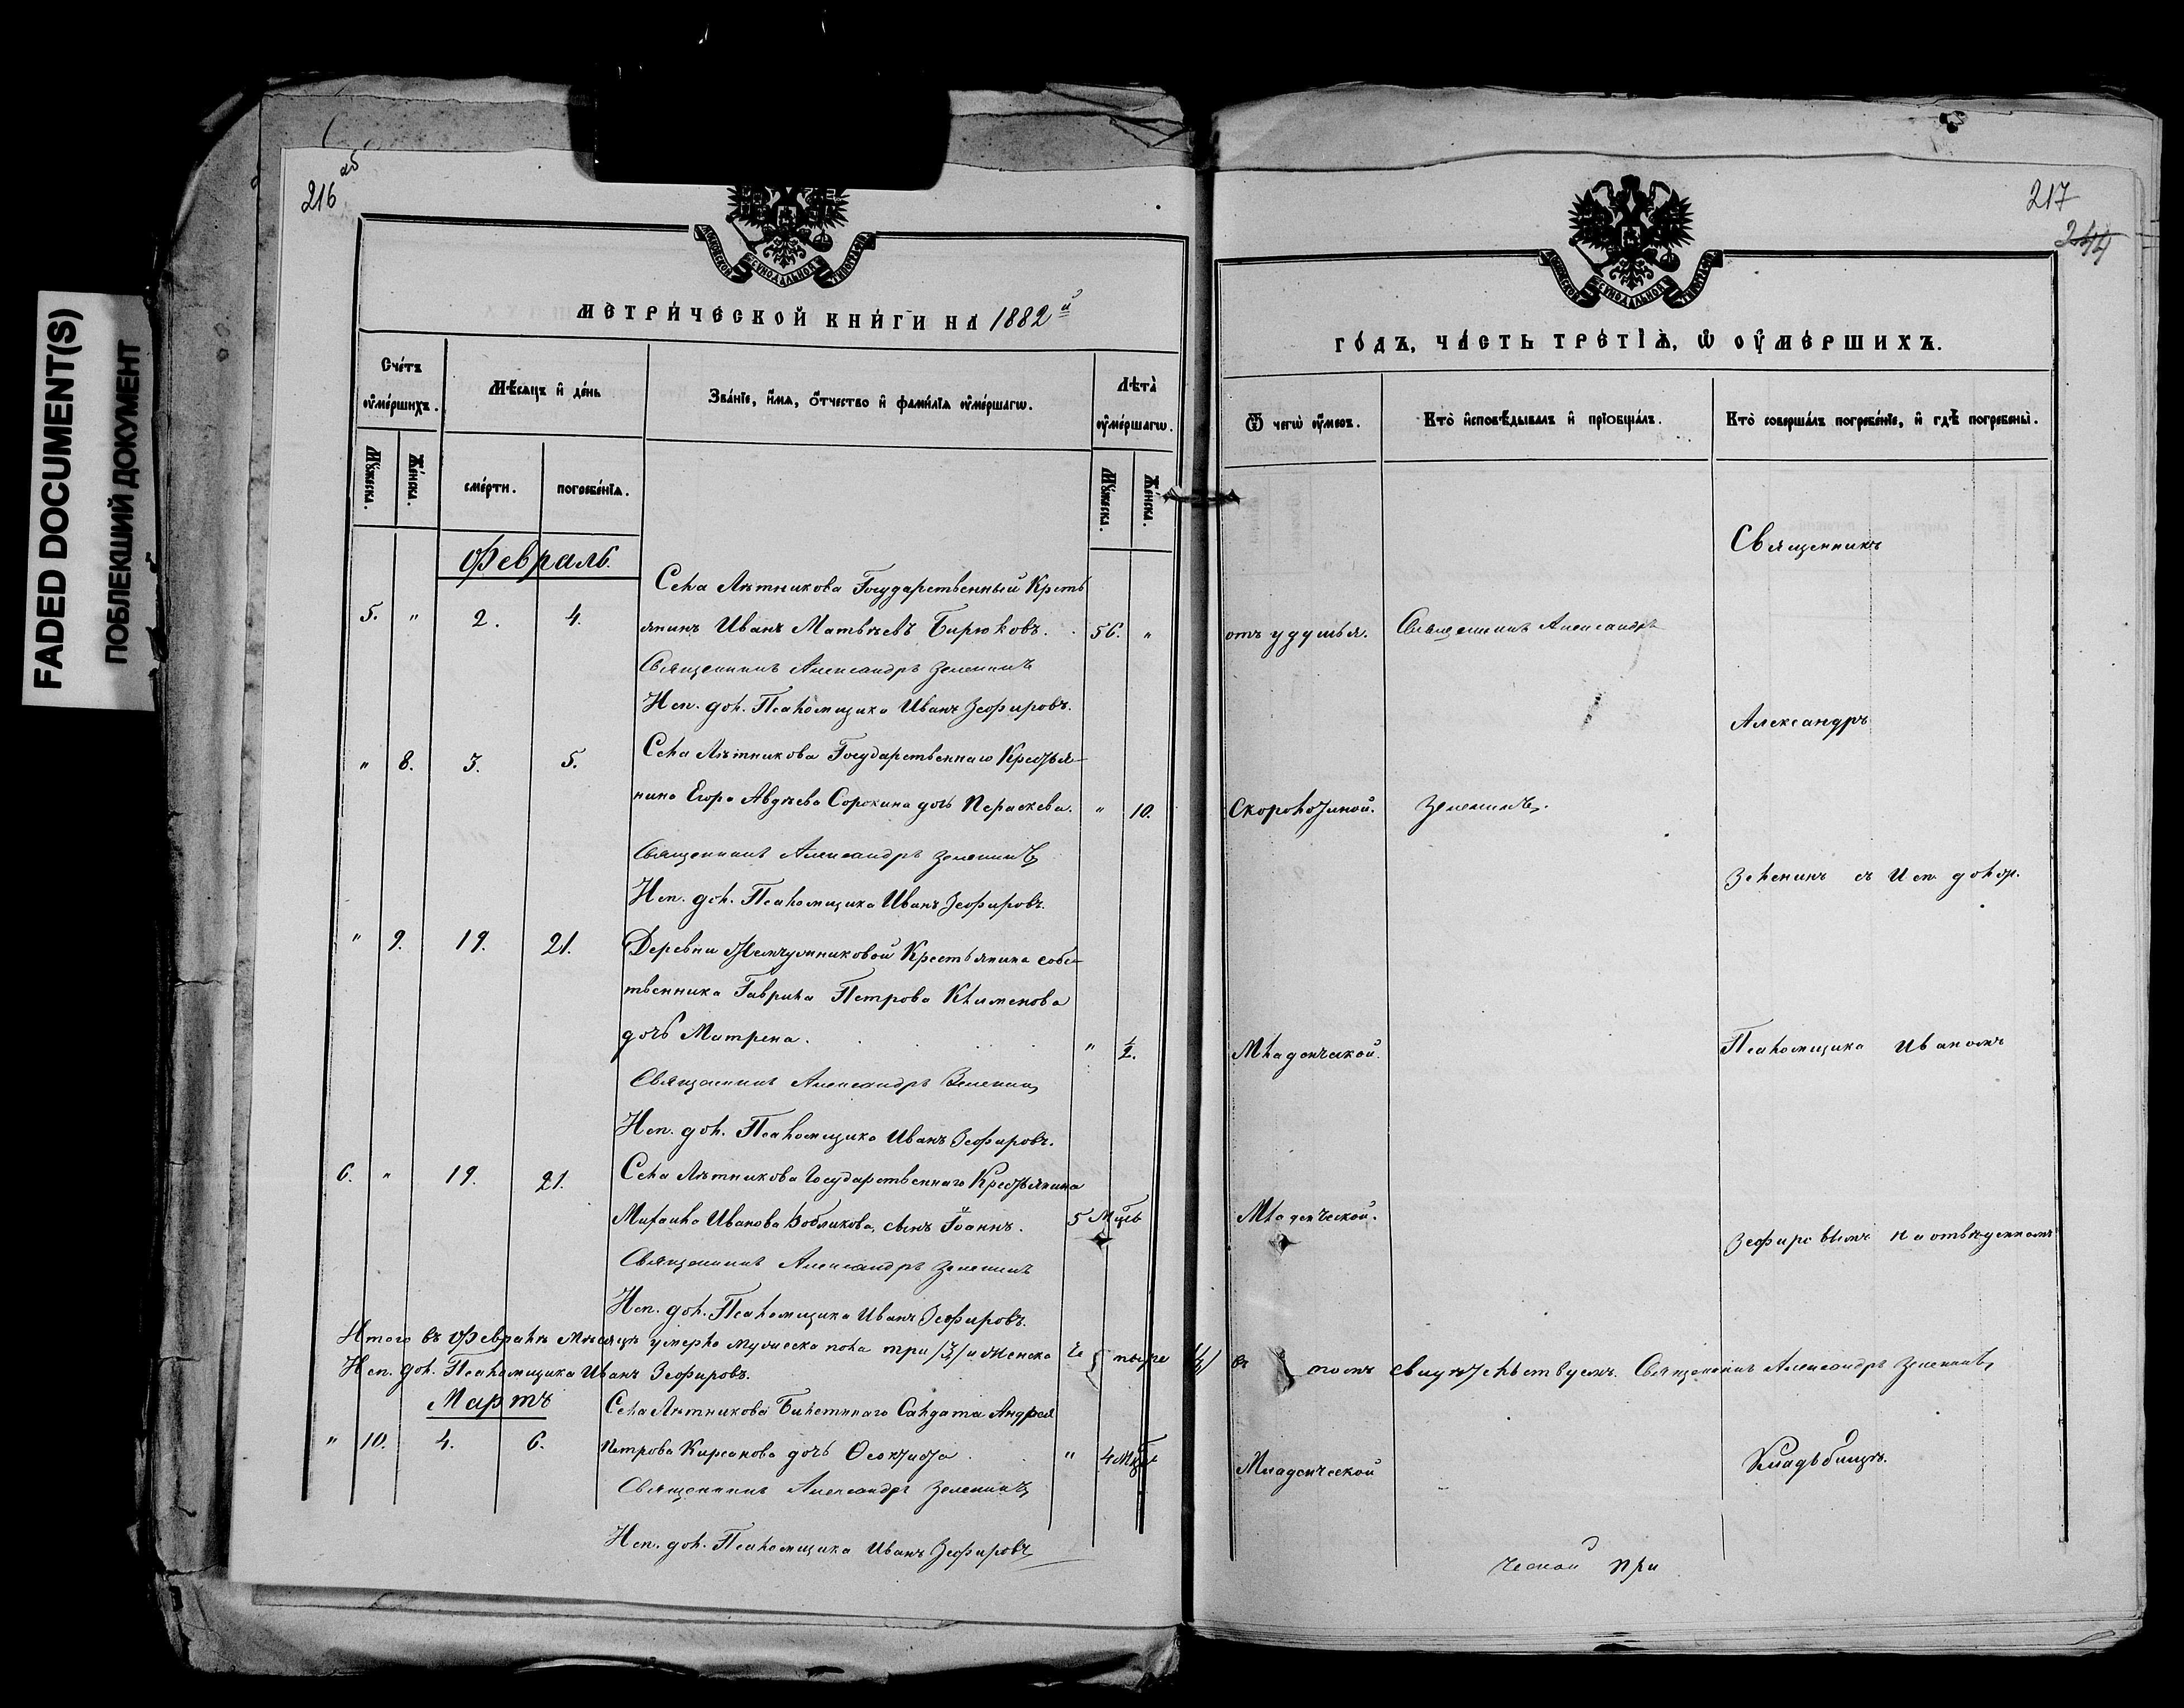 FADED DOCUMENT(S)
ПОБЛЕКШИЙ ДОКУМЕНТ
216 об
МОСКОВСКОЙ СУНОДАЛЬНОЙ ТИПОГРАФІИ
МЕТРИ́ЧЕСКОЙ КНИ́ГИ НА 1882й
Сче́тъ ᲂу҆ме́ршихъ.
Мѣ́сяцъ и҆ де́нь
Зва́нїе, и҆́мѧ, ѻ҆́тчество и҆ фами́лїѧ ᲂу҆ме́ршагѡ.
Лѣ́та ᲂу҆ме́ршагѡ.
Мꙋ́жеска. Же́нска.
сме́рти. погребе́нїѧ.
Мꙋ́жеска. Же́нска.
Февраль.
Села Лѣтникова Государственный Кресть
5. " 2. 4. янинъ Иванъ Матвѣевъ Бирюковъ. 56. "
Священникъ Александръ Зеленинъ
Исп. дол. Псаломщика Иванъ Зефировъ.
Села Лѣтникова Государственнаго Крестья-
" 8. 3. 5. нина Егора Авдѣева Сорокина дочь Параскева. " 10.
Священникъ Александръ Зеленинъ
Исп. дол. Псаломщика Иванъ Зефировъ.
" 9. 19. 21. Деревни Жемчужниковой Крестьянина собс-
твенника Гаврила Петрова Клименова
дочь Матрена. " ½.
Священникъ Александръ Зеленинъ
Исп. дол. Псаломщика Иванъ Зефировъ.
6. " 19. 21. Села Лѣтникова Государственнаго Крестьянина
Михаила Иванова Бобликова, сынъ Іоаннъ. 5 Мцсв
Священникъ Александръ Зеленинъ
Исп. дол. Псаломщика Иванъ Зефировъ.
Итого въ Февралѣ Мѣсяцѣ умерло мужеска пола три /3/ и женска че тыре /4/ въ томъ свидѣтельствуемъ. Священникъ Александръ Зеленинъ
Исп. дол. Псаломщика Иванъ Зефировъ.
Мартъ
Села Лѣтникова Билетнаго Салдата Андрея
" 10. 4. 6. Петрова Кирсанова дочь Ѳеоктиста. " 4 Мцсв
Священникъ Александръ Зеленинъ
Исп. дол. Псаломщика Иванъ Зефировъ
217
244
МОСКОВСКОЙ СУНОДАЛЬНОЙ ТИПОГРАФІИ
ГО́ДЪ, ЧА́СТЬ ТРЕ́ТЇѦ, Ѡ҆ ОУ҆МЕ́РШИХЪ.
Ѿ чегѡ̀ ᲂу҆́меръ.
Кто̀ и҆сповѣ́дывалъ и҆ прїобща́лъ.
Кто̀ соверша́лъ погребе́нїе, и҆ гдѣ̀ погребены̀.
Священникъ
отъ удушья. Священникъ Александръ
Александръ
Скоротечной. Зеленинъ.
Зеленинъ съ Исп. долж.
Младенческой. Псаломщика Иваномъ
Младенческой.
Зефировымъ на отведенномъ
Младенческой Кладбищѣ.
ческой при